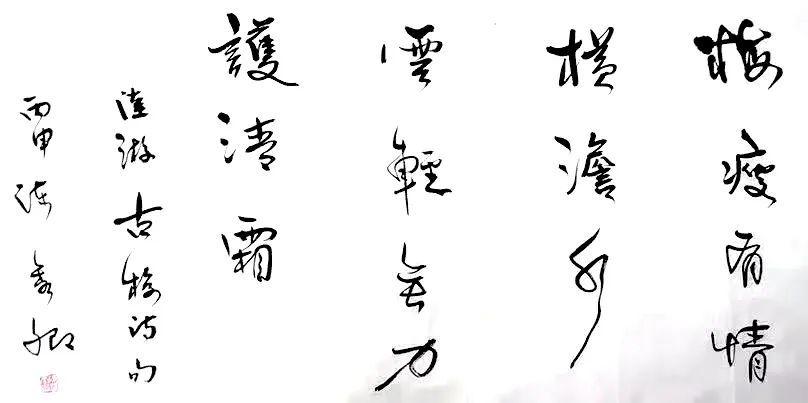 梅瘦有情
橫澹月
雲輕無力
護清霜
陸游古梅詩句
丙申秀卿